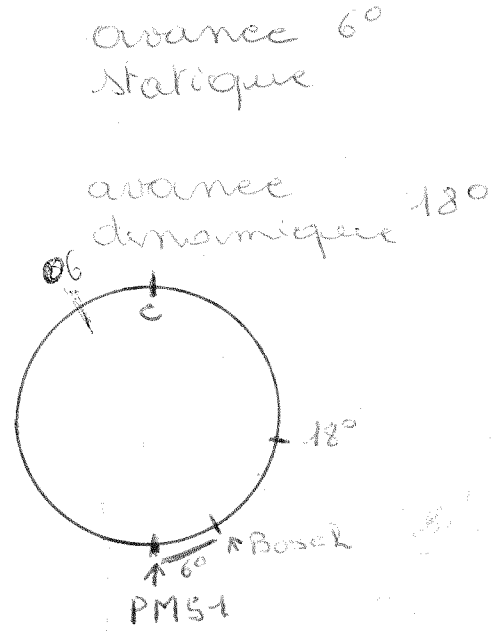 avance 6°
statique
avance 18°
dynamique
06
C
18°
Bosch
6°
PMS1